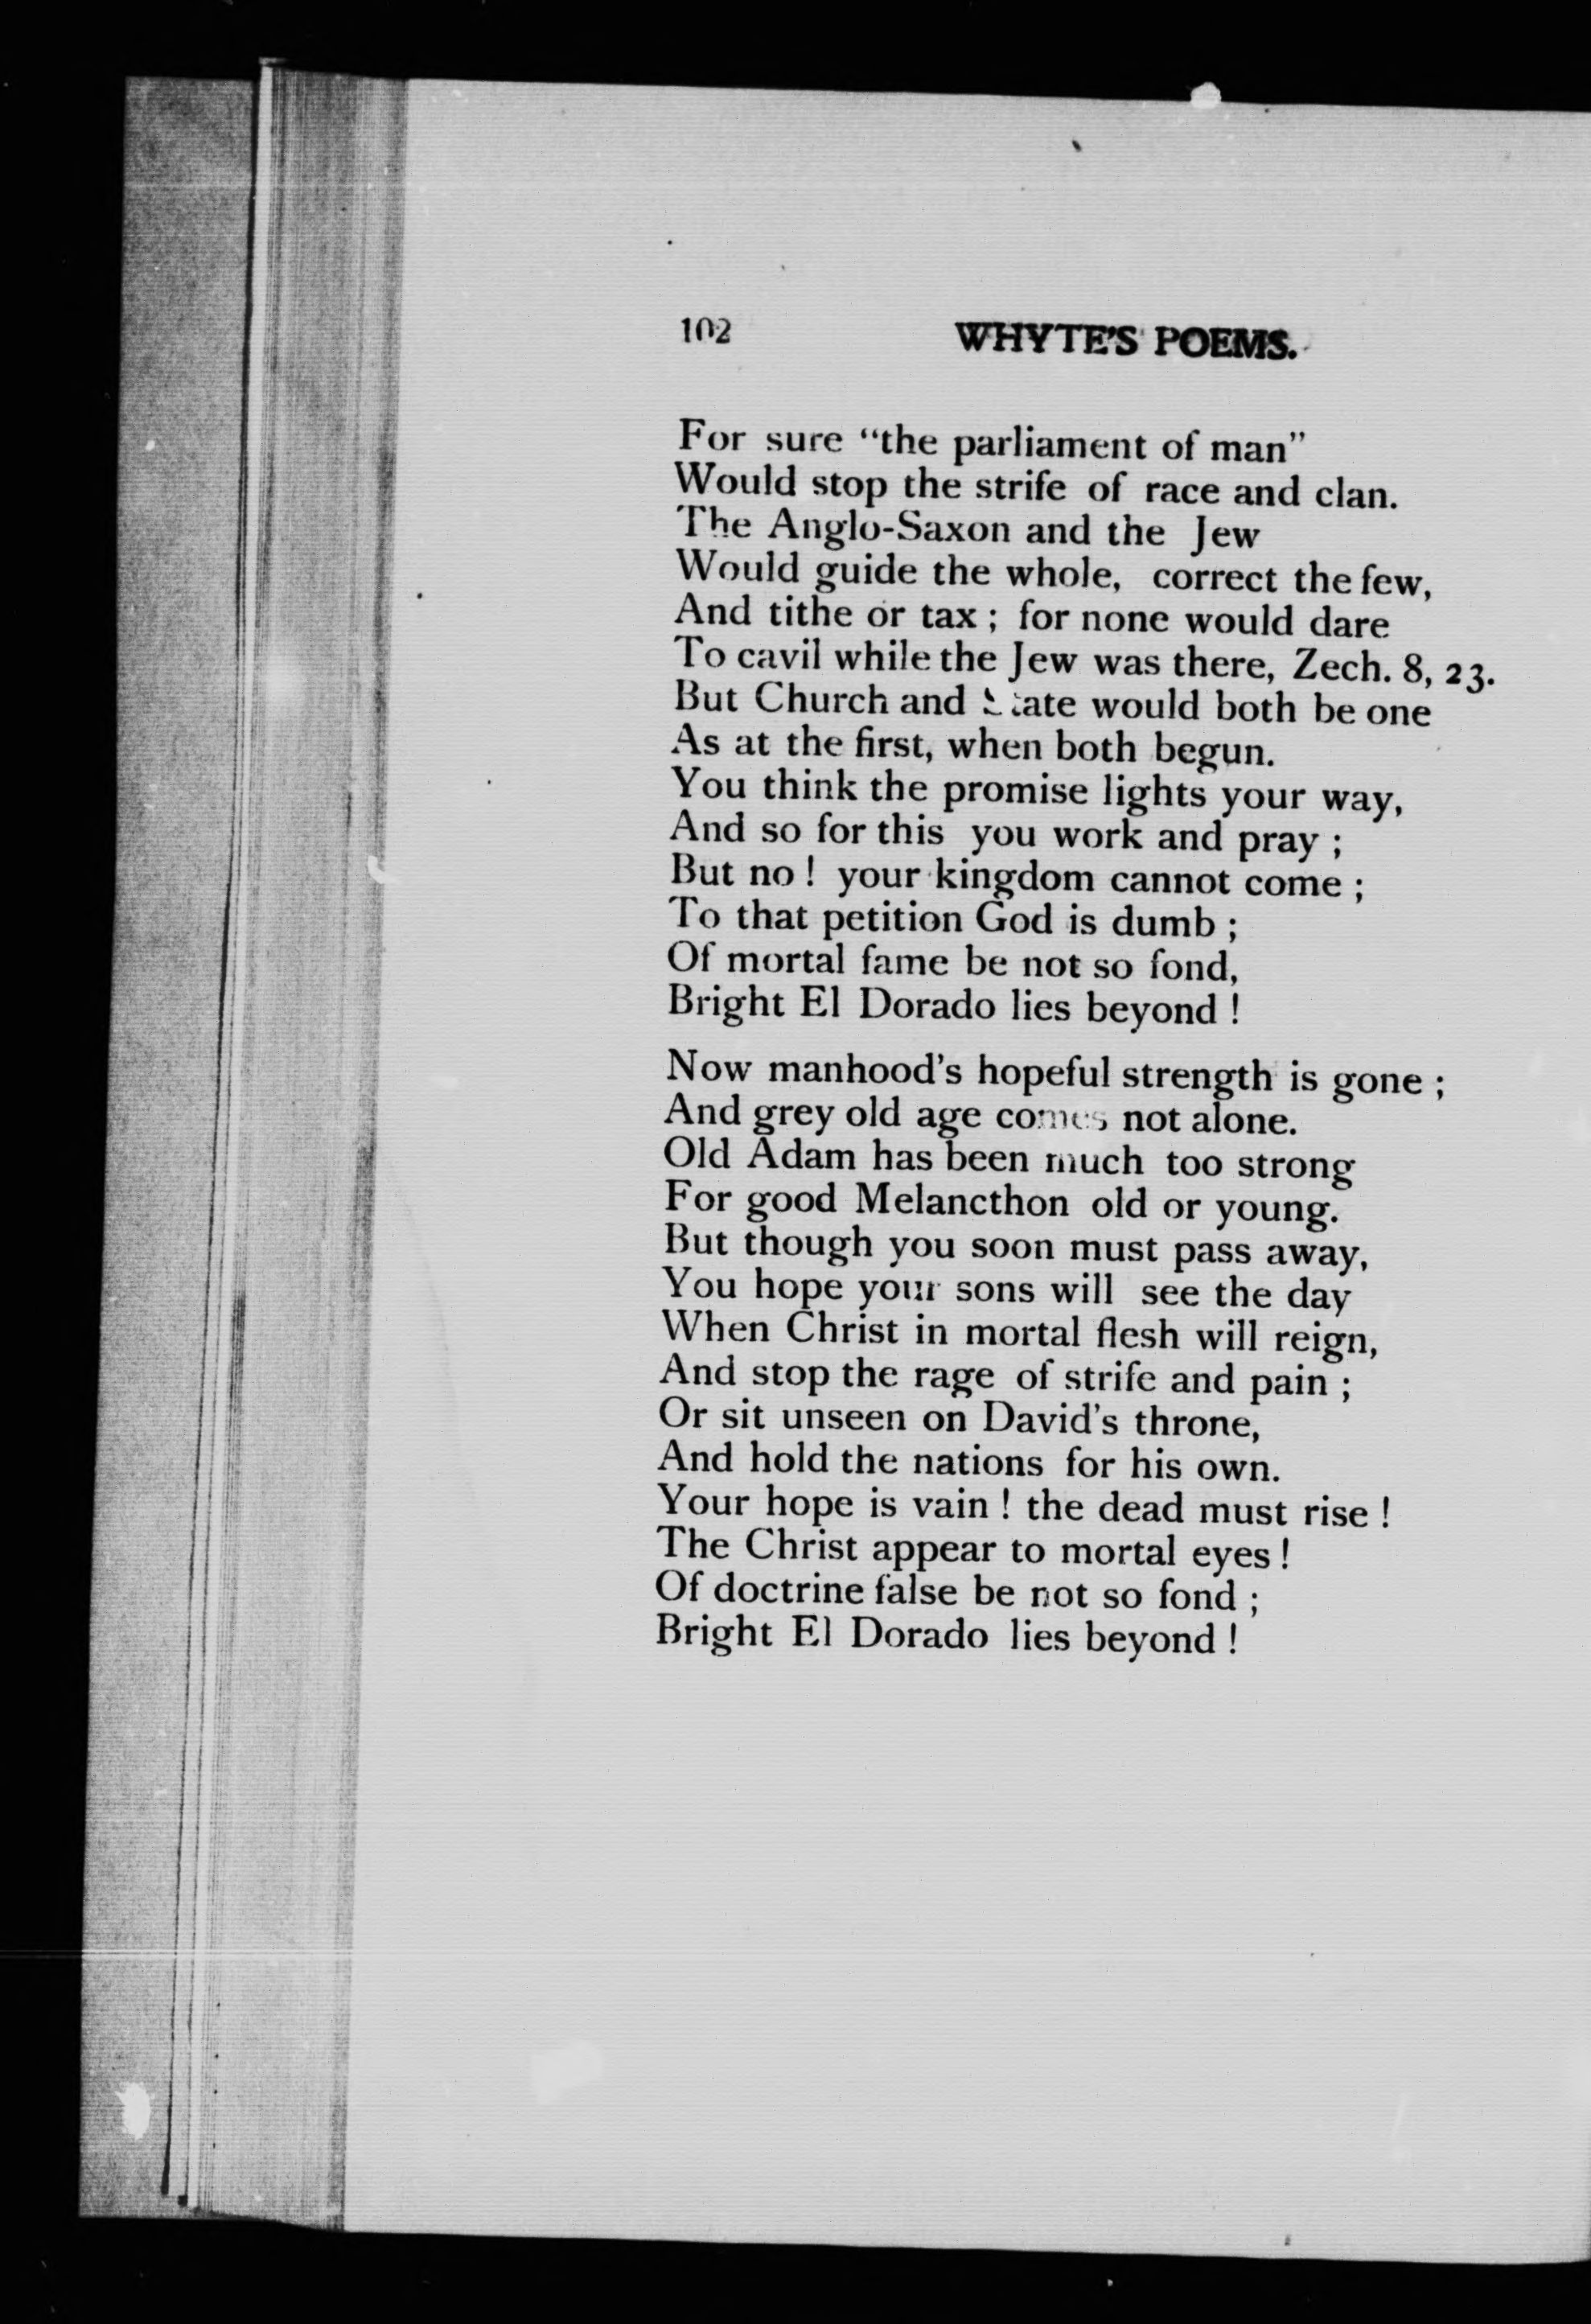 102 WHYTE'S POEMS.
For sure "the parliament of man"
Would stop the strife of race and clan.
The Anglo-Saxon and the Jew
Would guide the whole, correct the few,
And tithe or tax ; for none would dare
To cavil while the Jew was there, Zech. 8, 23.
But Church and State would both be one
As at the first, when both begun.
You think the promise lights your way,
And so for this you work and pray ;
But no ! your kingdom cannot come ;
To that petition God is dumb ;
Of mortal fame be not so fond,
Bright El Dorado lies beyond !
Now manhood's hopeful strength is gone ;
And grey old age comes not alone.
Old Adam has been much too strong
For good Melancthon old or young.
But though you soon must pass away,
You hope your sons will see the day
When Christ in mortal flesh will reign,
And stop the rage of strife and pain ;
Or sit unseen on David's throne,
And hold the nations for his own.
Your hope is vain ! the dead must rise !
The Christ appear to mortal eyes !
Of doctrine false be not so fond ;
Bright El Dorado lies beyond !